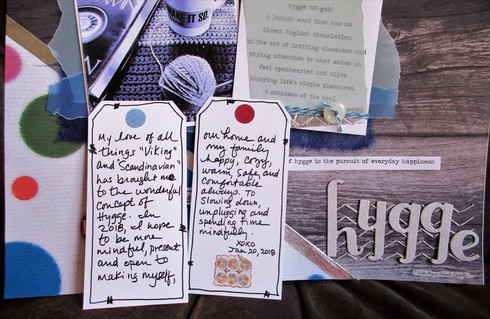 MAKE IT SO.
Hygge
A Danish word that has no
direct English translation.
the art of inviting closeness and
paying attention to what makes us
feel openhearted and alive.
Enjoying life's simple pleasures
A coziness of the soul.
My love of all
things "Viking"
and "Scandinavian"
has brought me
to the wonderful
concept of
Hygge. In
2018, I hope
to be more
mindful, present
and open to
making myself,
our home and
my family
happy, cozy,
warm, safe, and
comfortable
always. To
slowing down,
unplugging and
spending time
mindfully.
XOXO
Jan 20, 2018
of hygge in the pursuit of everyday happiness
hygge